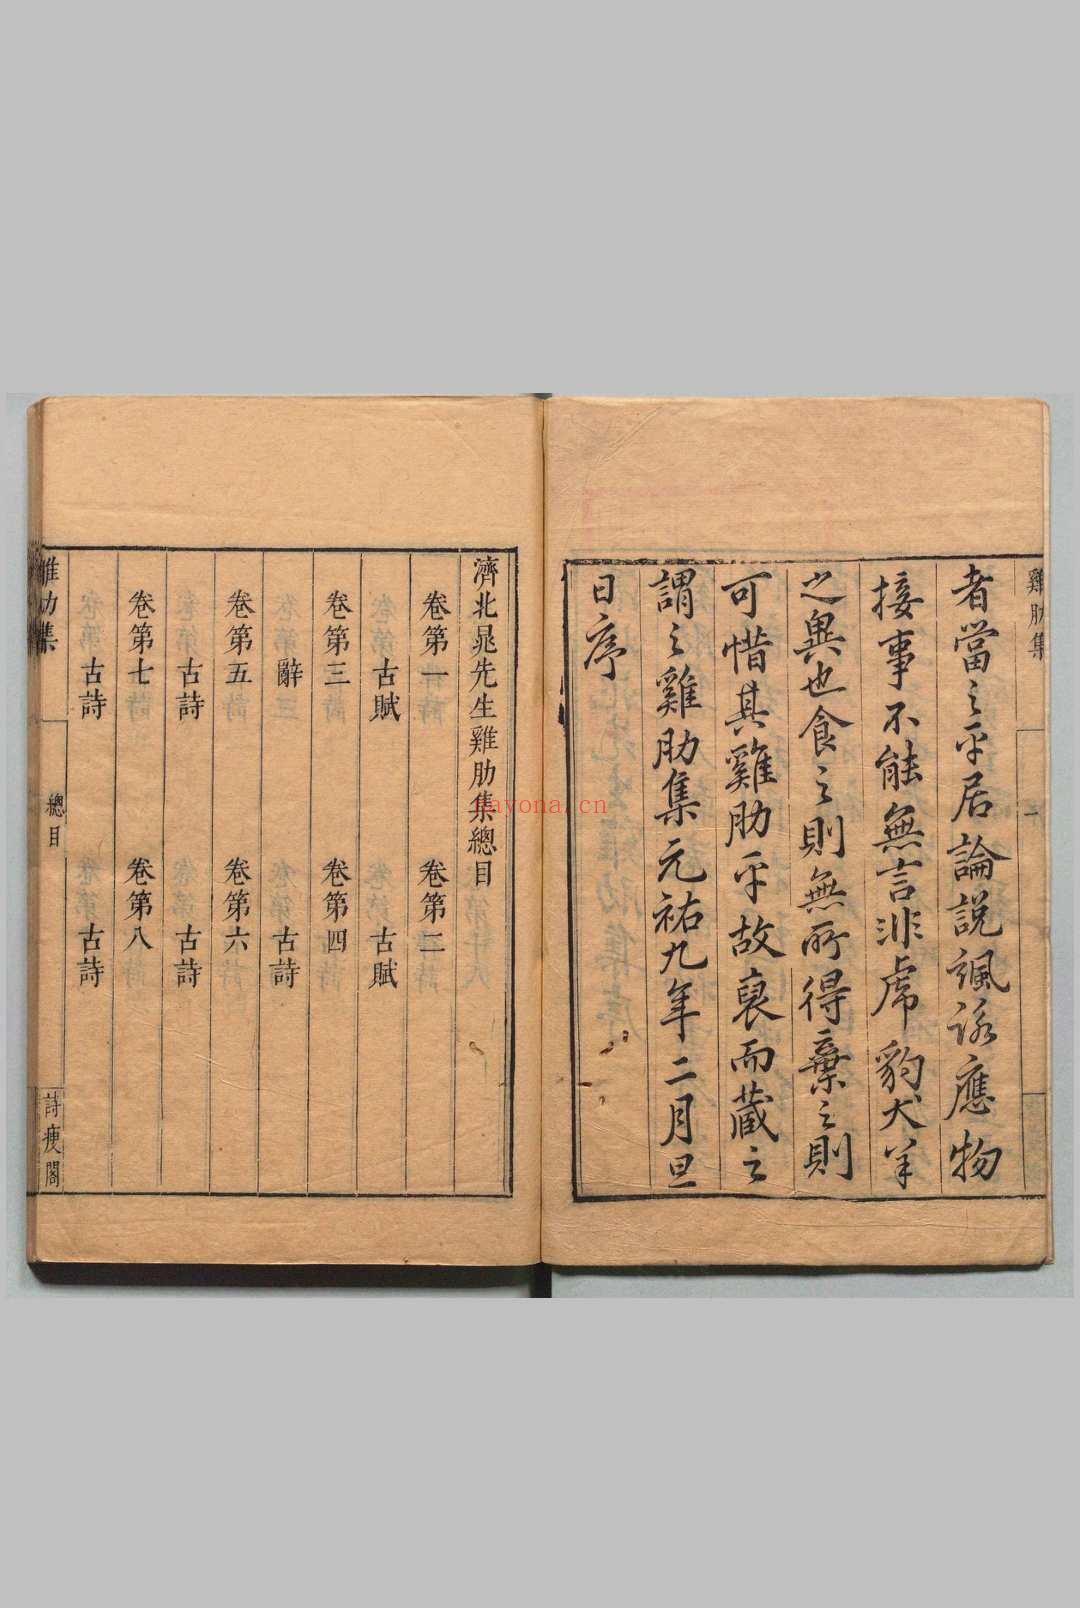 雞肋集
一
者當之平居論說諷詠應物
接事不能無言非虎豹犬羊
之異也食之則無所得棄之則
可惜其雞肋乎故裒而藏之
謂之雞肋集元祐九年二月旦
日序
濟北晁先生雞肋集總目
卷第一 卷第二
古賦 古賦
卷第三 卷第四
辭 古詩
卷第五 卷第六
古詩 古詩
卷第七 卷第八
古詩 古詩
雞肋集
總目
詩瘦閣
nayona.cn